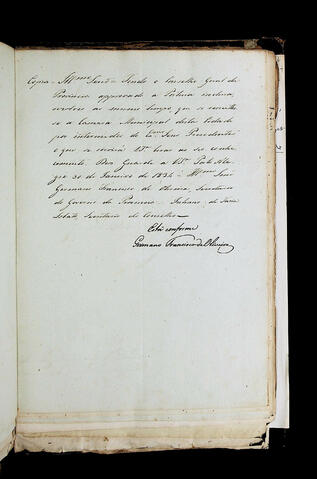 Copia = Ill.mo Senr = Tendo o Conselho Geral da
Provincia approvado a Postura inclusa,
resolveo ao mesmo tempo, que se remetta-
se a Camara Municipal desta Cidade
por intermedio do Exmo Senr Presidente
o que se
Deos Guarde a VS. Porto Ale-
gre 30 de Janeiro de 1834 = Illmo Senr
Germano Francisco de Oliveira, Secretario
do Governo da Provincia =
Secretario do Conselho
Está conforme
Germano Francisco de Oliveira